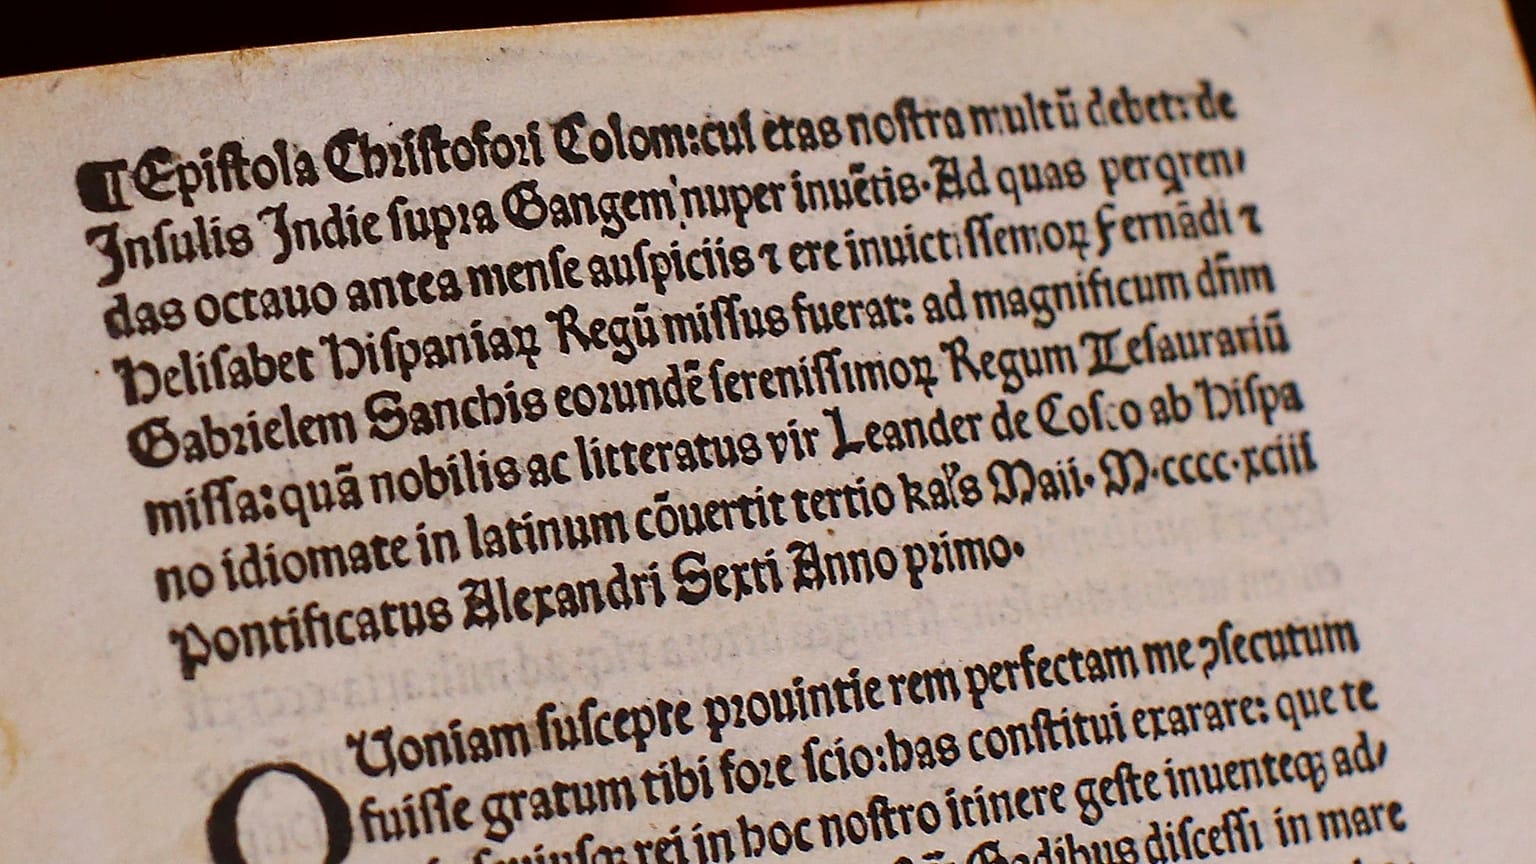 ¶ Epiſtola Chriſtofori Colom: cui etas noſtra multū debet: de
Inſulis Indie ſupra Gangem nuper inuētis. Ad quas perqren/
das octauo antea menſe auſpiciis ⁊ ere inuictiſſemoꝝ Fernādi ⁊
Heliſabet Hiſpaniaꝝ Regū miſſus fuerat: ad magnificum dn̄m
Gabrielem Sanchis eorundē ſereniſſimoꝝ Regum Teſaurariū
miſſa: quā nobilis ac litteratus vir Leander de Coſco ab Hiſpa
no idiomate in latinum cōuertit tertio kal's Maii. M.cccc.xciii
Pontificatus Alexandri Sexti Anno primo.
QUoniam ſuſcepte prouintie rem perfectam me ꝯſecutum
fuiſſe gratum tibi fore ſcio: has conſtitui exarare: que te
rei in hoc noſtro itinere geſte inuenteqꝫ ad/
Gadibus diſceſſi in mare